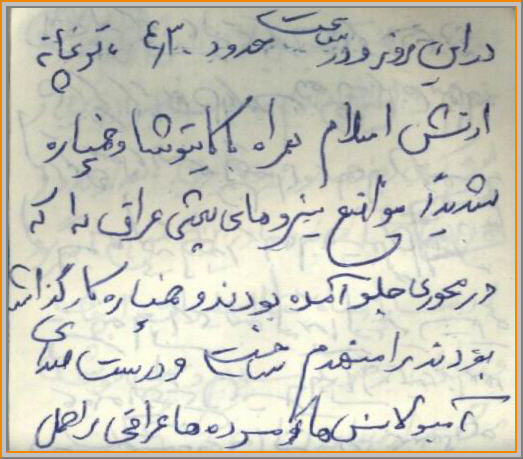 در این روز و در ساعت حدود ۴/۳۰، توپخانه
ارتش اسلام همراه با کاتیوشا و خمپاره
شدیداً مواضع نیروهای بعثی عراق را که
در محوری جلو آمده بودند و خمپاره کار گذاشته
بودند را منهدم ساخت و درست صدای
آمبولانس ها و مرده ها عراقی را حمل